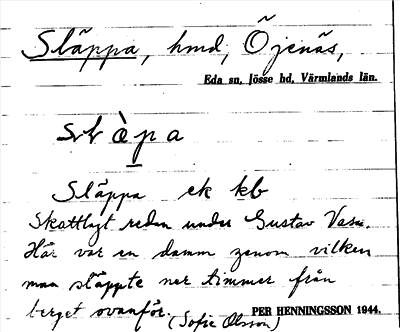 Släppa, hmd, Õjenäs,
Eda sn, Jösse hd, Värmlands län.
Släppa ek kb
Skattlagt redan under Gustav Vasa.
Här var en damm genom vilken
man släppte ner timmer från
berget ovanför. (Sofie Olsson)
PER HENNINGSSON 1944.